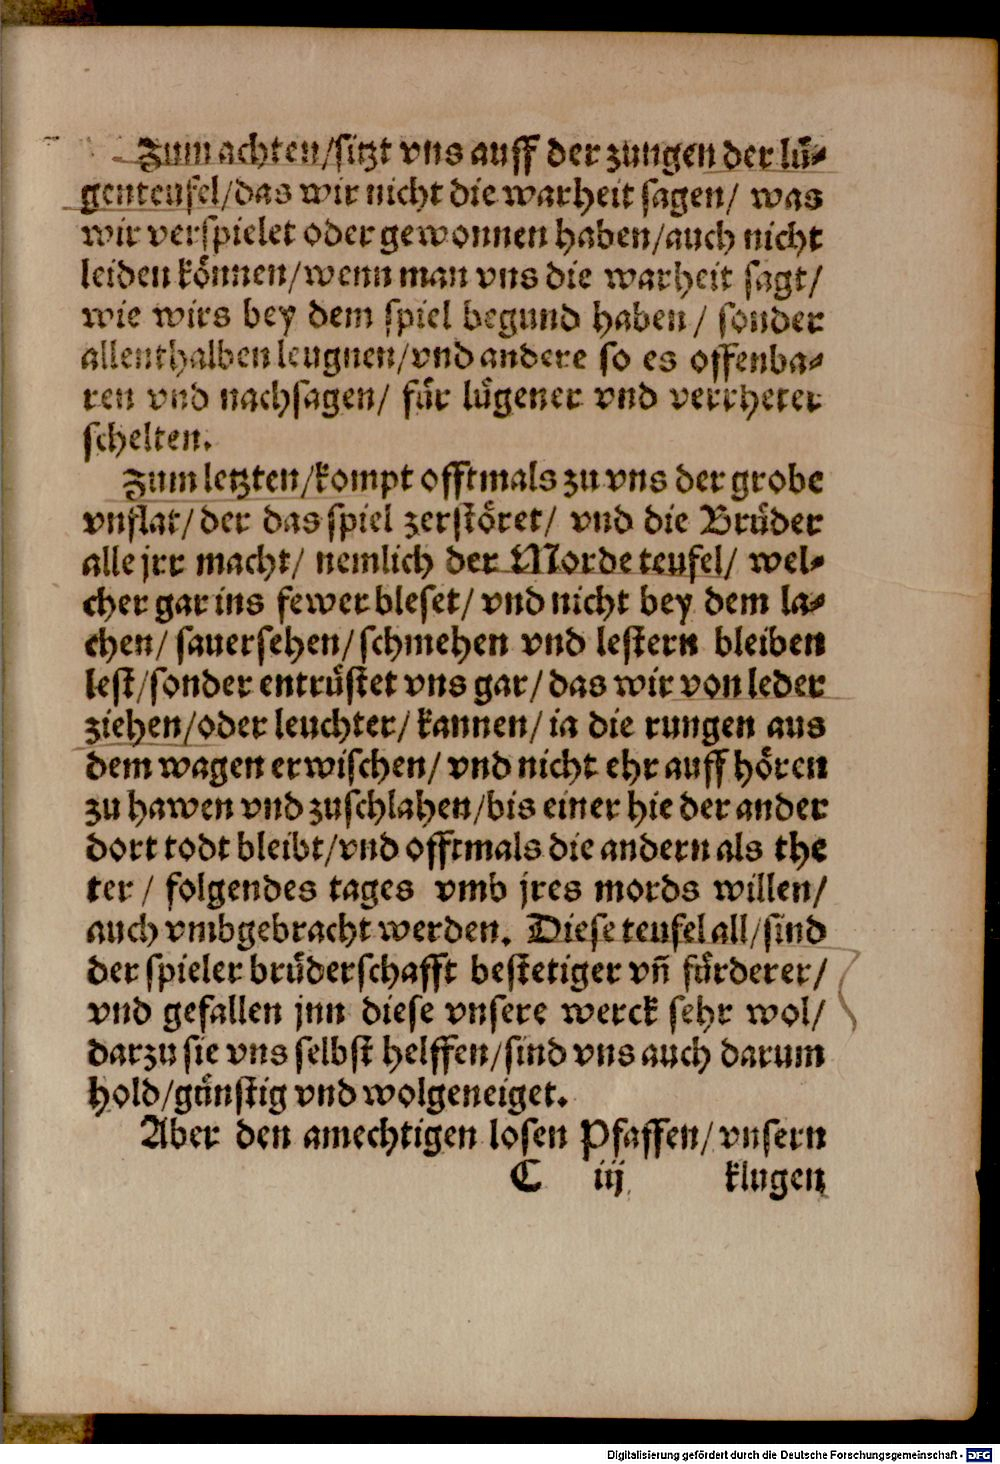 Zum achten/sitzt vns auff der zungen der lü⸗
genteufel/das wir nicht die warheit sagen/ was
wir verspielet oder gewonnen haben/auch nicht
leiden können/wenn man vns die warheit sagt/
wie wirs bey dem spiel begund haben/ sonder
allenthalben leugnen/vnd andere so es offenba⸗
ren vnd nachsagen/ für lügener vnd verrheter
schelten.
Zum letzten/kompt offtmals zu vns der grobe
vnflat/ der das spiel zerstöret/ vnd die Brüder
alle jrr macht/ nemlich der Morde teufel/ wel⸗
cher gar ins fewer bleset/ vnd nicht bey dem la⸗
chen/ sauersehen/ schmehen vnd lestern bleiben
lest/sonder entrüstet vns gar/ das wir von leder
ziehen/oder leuchter/ kannen/ ia die rungen aus
dem wagen erwischen/ vnd nicht ehr auff hören
zu hawen vnd zuschlahen/bis einer hie der ander
dort todt bleibt/vnd offtmals die andern als the
ter / folgendes tages vmb jres mords willen/
auch vmbgebracht werden. Diese teufel all/sind
der spieler brüderschafft bestetiger vn̄ fürderer/
vnd gefallen jnn diese vnsere werck sehr wol/
darzu sie vns selbst helffen/sind vns auch darum
hold/günstig vnd wolgeneiget.
Aber den amechtigen losen Pfaffen/ vnsern
C iij klugen
Digitalisierung gefördert durch die Deutsche Forschungsgemeinschaft - DFG